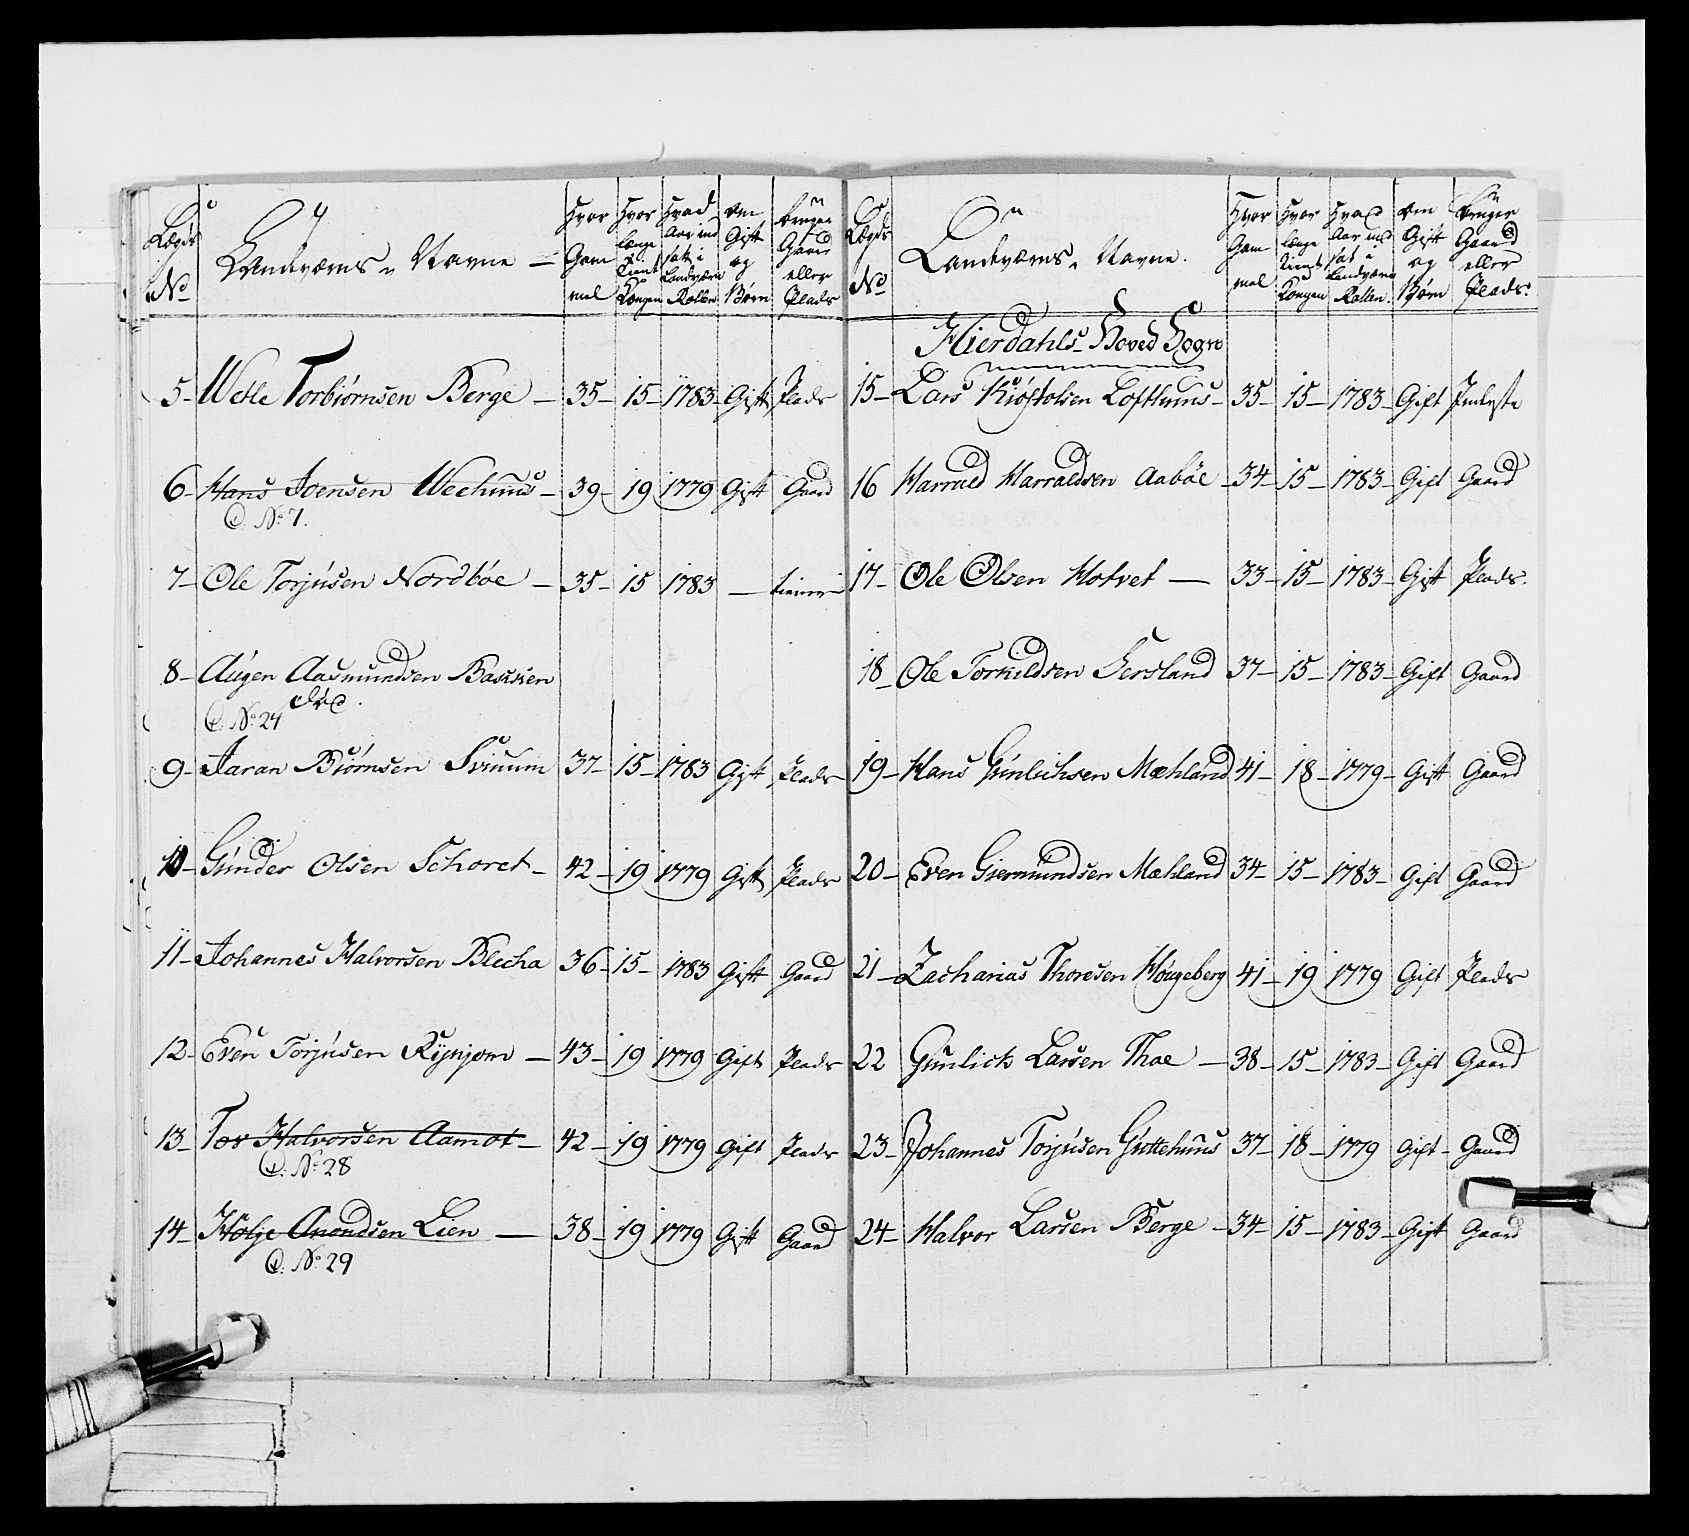 Lægds No | Landværns Navne | Hvor Gammel | Hvor længe Tient Kongen | Hvad Aar indsat i Landværns Rollen | Om Gift og Børn | bruger Gaard eller Plads
5 – Wetle Torbiørnsen Berge – 35 – 15 – 1783 – Gift Plads
6 – Hans Joensen Wechuus – 39 – 19 1779 Gift Gaard
C. No 7.
7 – Ole Torjusen Nordbøe – 35 – 15 1783 — tiener
8 – Augen Aasmundsen Bakken
død.
C. No 24
9 – Aaran Biørnsen Sviuum 37 – 15 – 1783 Gift Plads
10 – Gunder Olsen Schoret – 42 – 19 1779 Gift Plads
11 – Johannes Halvorsen Blecha 36 – 15 – 1783 Gift Gaard
12 – Even Torjusen Rijsjom – 43 – 19 1779 Gift Plads
13 – Tov Halvorsen Aamot – 42 – 19 1779 Gift Plads
C: No 28
14 – Holje Anondsen Lien — 38 – 19 1779 Gift Gaard
C. No 29
Lægds No | Landværns Navne. | Hvor Gammel | Hvor længe Tient Kongen | Hvad Aar indsat i Landværns Rollen. | Om Gift og Børn | bruger Gaard eller Plads:
Hierdahls Hoved Sogn
15 – Lars Kiøstolsen Lofthuus – 35 – 15 – 1783 – Gift
16 Harrald Harraldsen Aabøe – 34 – 15 – 1783 – Gift Gaard
17 – Ole Olsen Hofvet — 33 – 15 – 1783 – Gift Plads.
18 – Ole Torkildsen 37 – 15 – 1783 – Gift Gaard
19 – Hans Gunlichsen Mæhland 41 – 18 – 1779 – Gift Gaard
20 – Even Giermundsen Mæhland 34 – 15 – 1783 – Gift Gaard
21 – Zacharias Thoresen Høugeberg 41 – 19 1779 Gift Plads
22 Gunlich Larsen Thoe – 38 – 15 – 1783 – Gift Gaard
23 – Johannes Torjusen Guttehuus 37 – 18 – 1779 Gift – Gaard
24 – Halvor Larsen Berge – 34 – 15 – 1783 – Gift Gaard